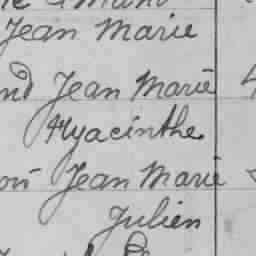 Jean Marie
nd Jean Marie
Hyacinthe
Jean Marie
Julien